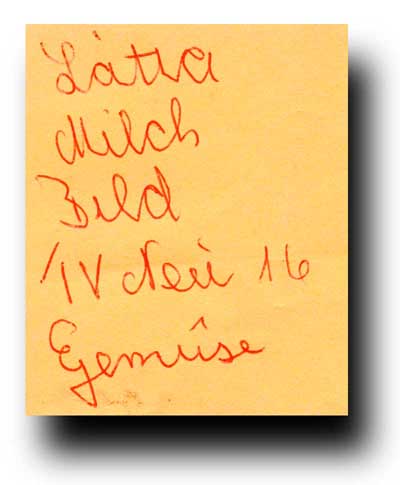 Lätta
Milch
Bild
TV Neu 16
Gemüse